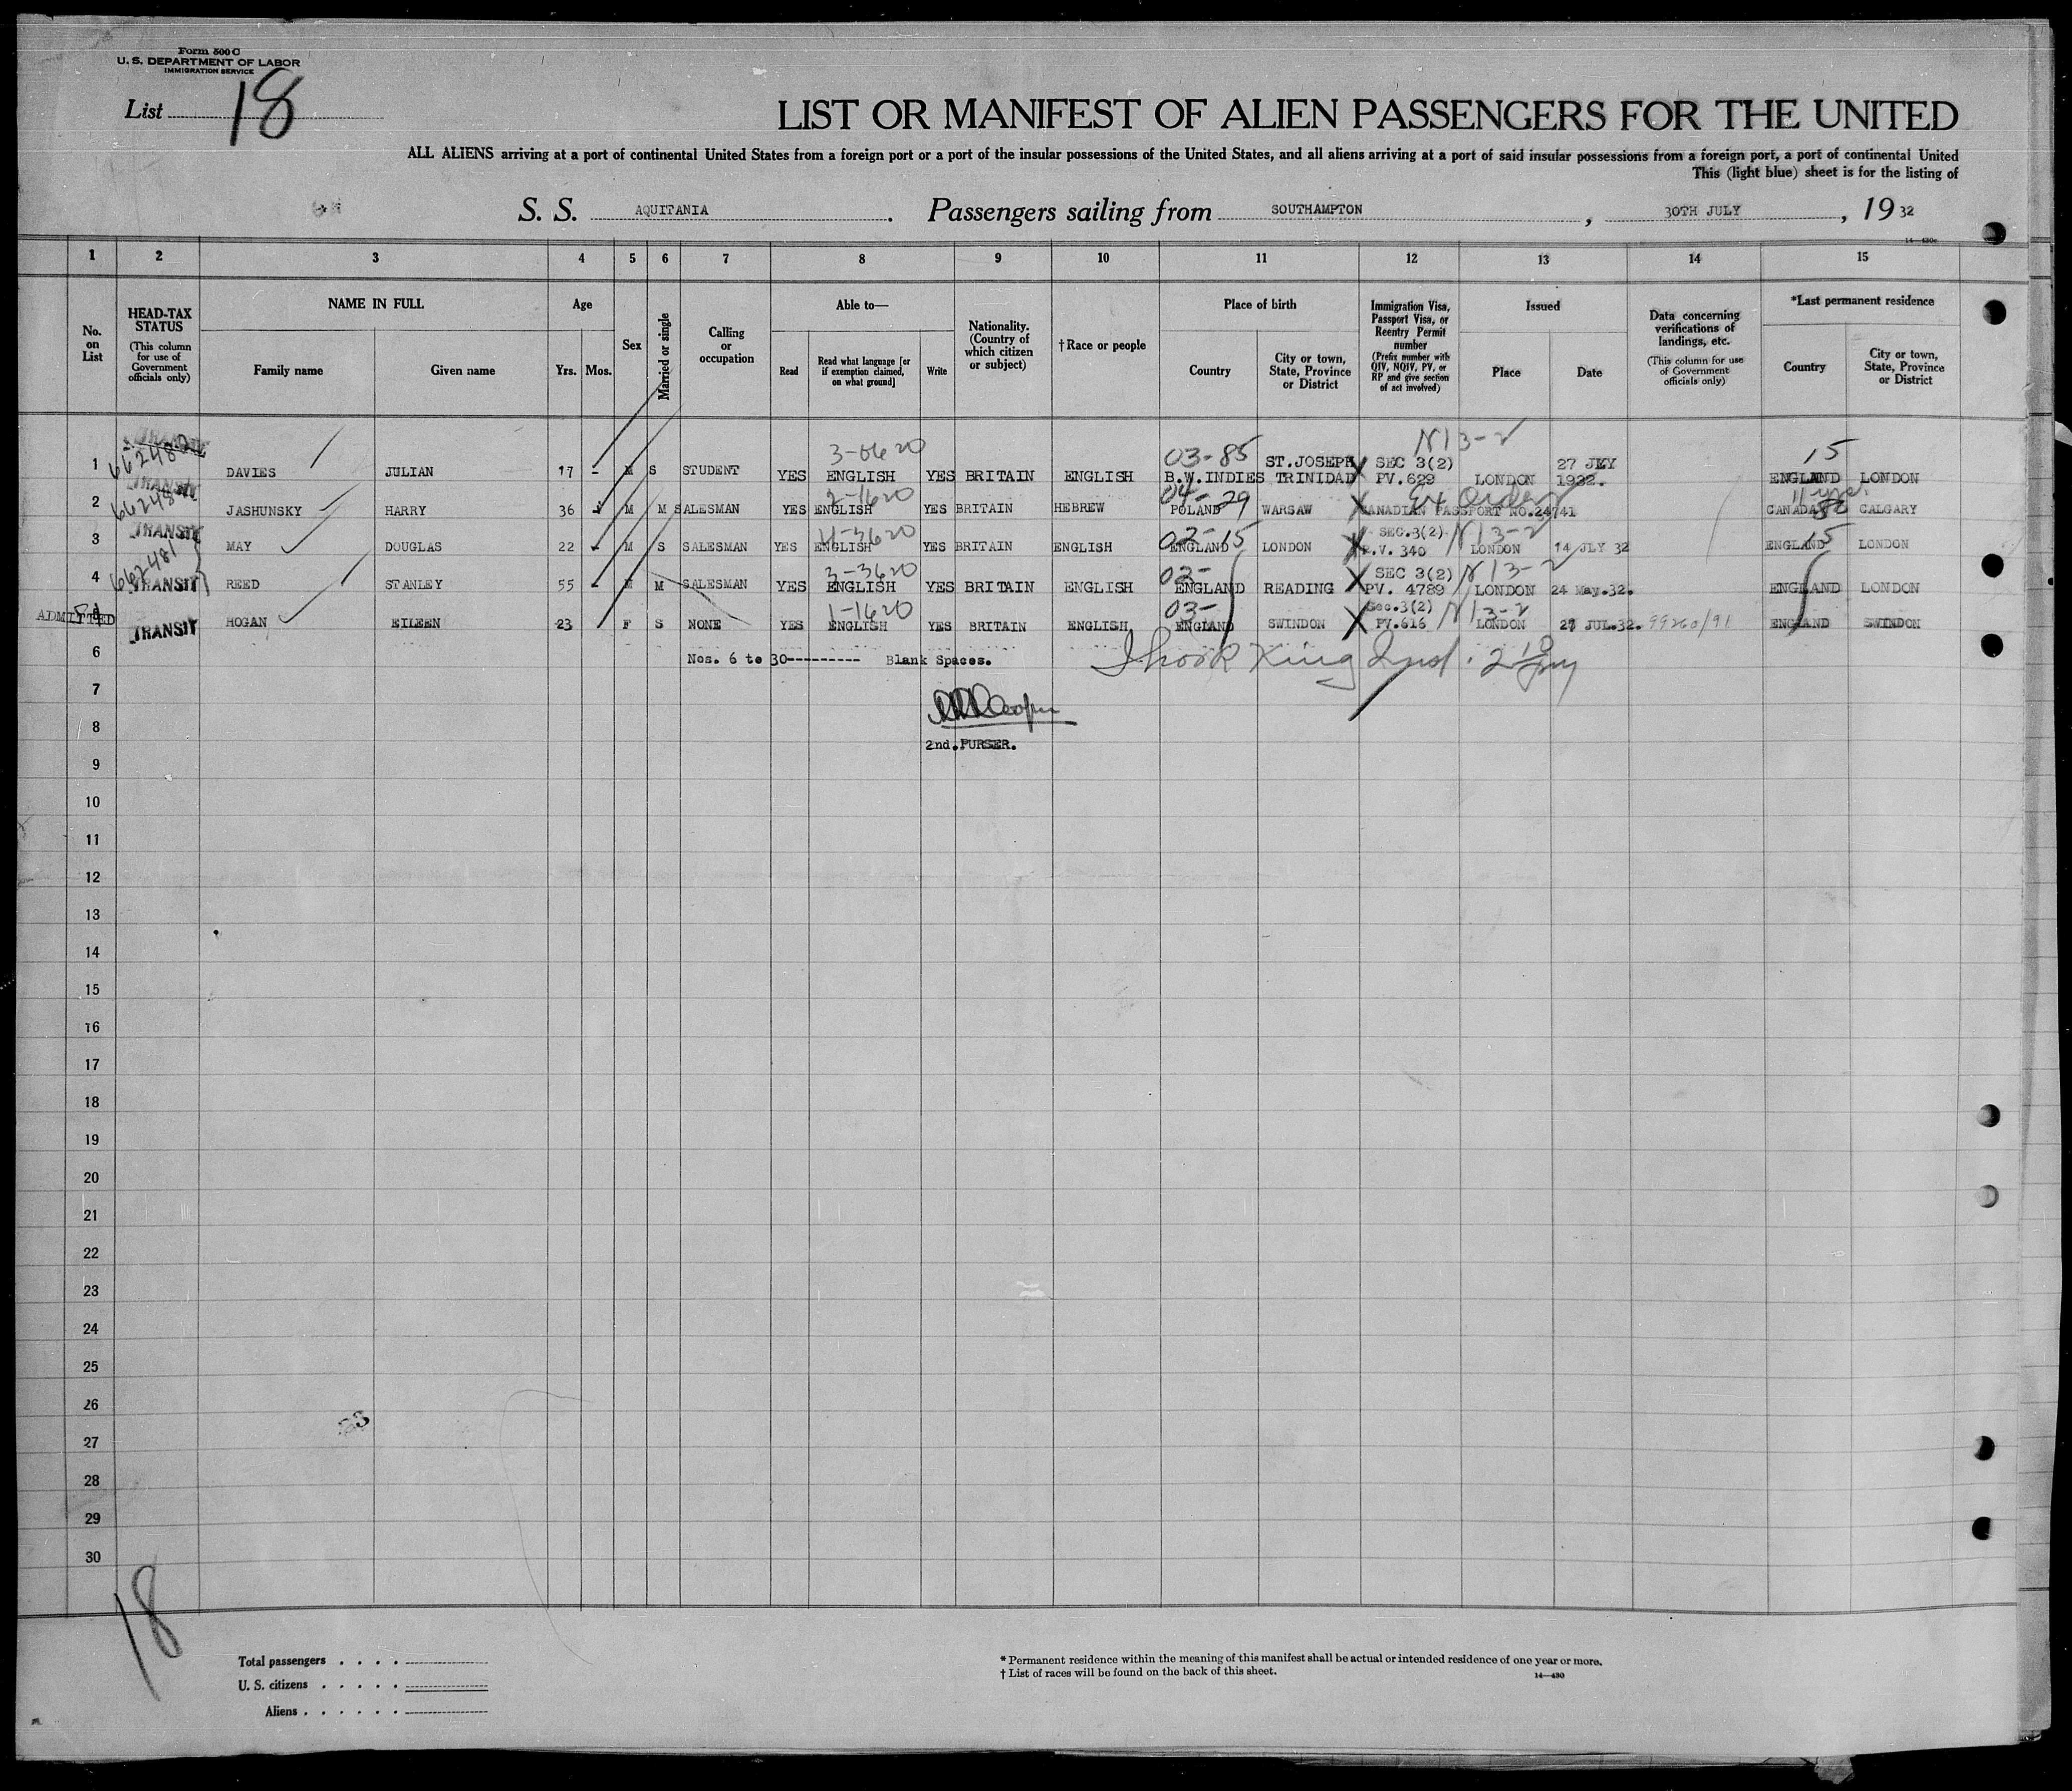 Form 500 C
U. S. DEPARTMENT OF LABOR
IMMIGRATION SERVICE
List 18
LIST OR MANIFEST OF ALIEN PASSENGERS FOR THE UNITED
ALL ALIENS arriving at a port of continental United States from a foreign port or a port of the insular possessions of the United States, and all aliens arriving at a port of said insular possessions from a foreign port, a port of continental United
This (light blue) sheet is for the listing of
S. S. AQUITANIA. Passengers sailing from SOUTHAMPTON, 30TH JULY, 19 32
1 2 3 4 5 6 7 8 9 10 11 12 13 14 15
No. on List
HEAD-TAX STATUS (This column for use of Government officials only)
NAME IN FULL Family name Given name
Age Yrs. Mos.
Sex
Married or single
Calling or occupation
Able to— Read Read what language [or if exemption claimed, on what ground] Write
Nationality. (Country of which citizen or subject)
†Race or people
Place of birth Country City or town, State, Province or District
Immigration Visa, Passport Visa, or Reentry Permit number (Prefix number with QIV, NQIV, PV, or RP and give section of act involved)
Issued Place Date
Data concerning verifications of landings, etc. (This column for use of Government officials only)
*Last permanent residence Country City or town, State, Province or District
N 13-2
3-0620 03-85 ST.JOSEPH SEC 3(2) 27 JLY 15
1 662482 DAVIES JULIAN 17 - M S STUDENT YES ENGLISH YES BRITAIN ENGLISH B.W.INDIES TRINIDAD PV.629 LONDON 1932. ENGLAND LONDON
TRANSIT 2-1620 04-29 11 yrs.
2 JASHUNSKY HARRY 36 - M M SALESMAN YES ENGLISH YES BRITAIN HEBREW POLAND WARSAW CANADIAN PASSPORT NO.24741 CANADA CALGARY
TRANSIT 4-3620 02-15 SEC.3(2) N 13-2 15
3 662481 MAY DOUGLAS 22 - M S SALESMAN YES ENGLISH YES BRITAIN ENGLISH ENGLAND LONDON P.V. 340 LONDON 14 JLY 32 ENGLAND LONDON
3-3620 02- SEC 3(2) N 13-2
4 TRANSIT REED STANLEY 55 - M M SALESMAN YES ENGLISH YES BRITAIN ENGLISH ENGLAND READING PV. 4789 LONDON 24 May.32. ENGLAND LONDON
1-1620 03- Sec.3(2) N 13-2
ADMITTED TRANSIT HOGAN EILEEN 23 F S NONE YES ENGLISH YES BRITAIN ENGLISH ENGLAND SWINDON PV.616 LONDON 27 JUL.32. 99260/91 ENGLAND SWINDON
6 Nos. 6 to 30---------- Blank Spaces.
7
8
2nd. PURSER.
9
10
11
12
13
14
15
16
17
18
19
20
21
22
23
24
25
26
27
28
29
30
18
Total passengers . . . .
U. S. citizens . . . . .
Aliens . . . . . .
* Permanent residence within the meaning of this manifest shall be actual or intended residence of one year or more.
† List of races will be found on the back of this sheet.
14—430